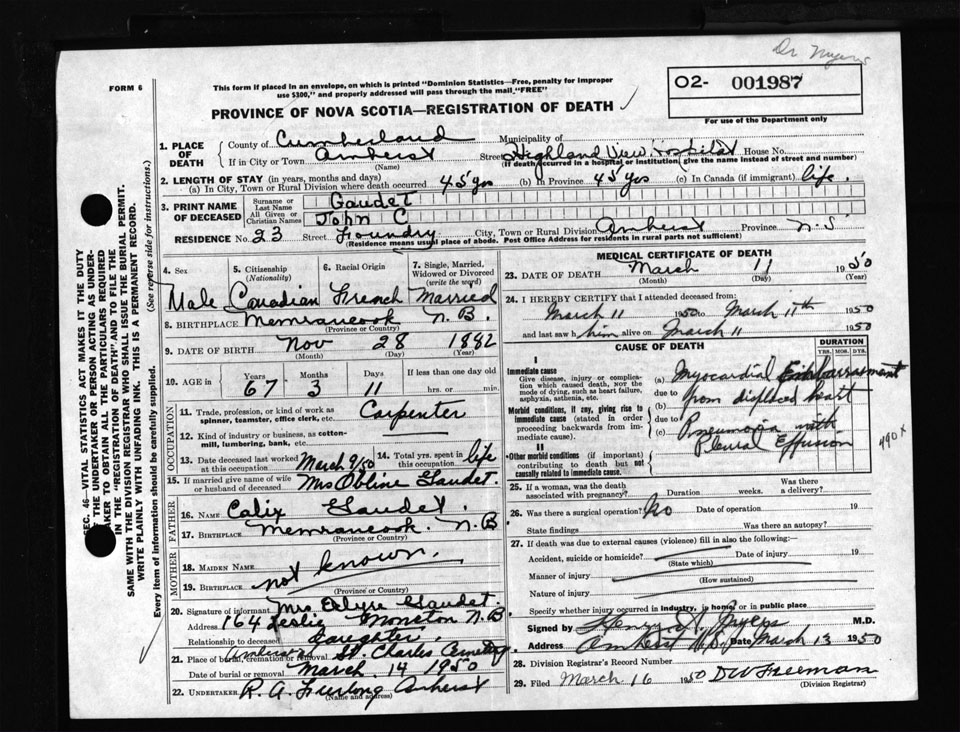 Dr Myers
FORM 6
This form if placed in an envelope, on which is printed "Dominion Statistics—Free, penalty for improper
use $300," and properly addressed will pass through the mail "FREE"
O2- 001987
For use of the Department only
PROVINCE OF NOVA SCOTIA—REGISTRATION OF DEATH
1. PLACE OF DEATH
County of Cumberland Municipality of
If in City or Town Amherst Street Highland View Hospital House No.
(Name) (If death occurred in a hospital or institution, give the name instead of street and number)
2. LENGTH OF STAY (in years, months and days)
(a) In City, Town or Rural Division where death occurred 45 yrs (b) In Province 45 yrs (c) In Canada (if immigrant) life.
3. PRINT NAME OF DECEASED
Surname or Last Name Gaudet
All Given or Christian Names John C
RESIDENCE No. 23 Street Foundry City, Town or Rural Division Amherst Province N.S
(Residence means usual place of abode. Post Office Address for residents in rural parts not sufficient)
4. Sex
5. Citizenship (Nationality)
6. Racial Origin
7. Single, Married, Widowed or Divorced (write the word)
Male Canadian French Married
8. BIRTHPLACE Memramcook N.B.
(Province or Country)
9. DATE OF BIRTH Nov 28 1882
(Month) (Day) (Year)
10. AGE in Years Months Days If less than one day
67 3 11 hrs. or min.
OCCUPATION
11. Trade, profession, or kind of work as spinner, teamster, office clerk, etc. Carpenter
12. Kind of industry or business, as cotton-mill, lumbering, bank, etc.
13. Date deceased last worked at this occupation March 9/50
14. Total yrs. spent in this occupation life
15. If married give name of wife or husband of deceased Mrs Obline Gaudet.
FATHER
16. Name Calix Gaudet.
17. BIRTHPLACE Memramcook. N.B
(Province or Country)
MOTHER
18. MAIDEN NAME
19. BIRTHPLACE not known.
(Province or Country)
20. Signature of informant Mrs Gaudet
Address 164 Leslie Moncton N.B
Relationship to deceased daughter.
21. Place of burial, cremation or removal Amherst St. Charles Cemetery
Date of burial or removal March 14 1950
22. UNDERTAKER R. A. Furlong Amherst
(Name and address)
MEDICAL CERTIFICATE OF DEATH
23. DATE OF DEATH March 11 1950
(Month) (Day) (Year)
24. I HEREBY CERTIFY that I attended deceased from:
March 11 1950 to March 11th 1950
and last saw him alive on March 11 1950
CAUSE OF DEATH
DURATION
YRS. MOS. DYS.
I
Immediate cause
Give disease, injury or complication which caused death, not the mode of dying, such as heart failure, asphyxia, asthenia, etc.
(a) Myocardial Embarrassment
due to from displaced heart
Morbid conditions, if any, giving rise to immediate cause (stated in order proceeding backwards from immediate cause).
(b)
due to Pneumonia with
(c) Pleural Effusion
490x
II
Other morbid conditions (if important) contributing to death but not causally related to immediate cause.
25. If a woman, was the death associated with pregnancy? Duration weeks. Was there a delivery?
26. Was there a surgical operation? No Date of operation 19
State findings Was there an autopsy?
27. If death was due to external causes (violence) fill in also the following:
Accident, suicide or homicide? Date of injury 19
(State which)
Manner of injury
(How sustained)
Nature of injury
Specify whether injury occurred in industry, in home, or in public place
Signed by Henry A. Myers M.D.
Address Amherst N.S. Date March 13 1950
28. Division Registrar's Record Number
29. Filed March 16 1950 DW Freeman
(Division Registrar)
SEC. 46—VITAL STATISTICS ACT MAKES IT THE DUTY
OF THE UNDERTAKER OR PERSON ACTING AS UNDER-
TAKER TO OBTAIN ALL THE PARTICULARS REQUIRED
IN THE "REGISTRATION OF DEATH" AND TO FILE THE
SAME WITH THE DIVISION REGISTRAR WHO SHALL ISSUE THE BURIAL PERMIT.
WRITE PLAINLY WITH UNFADING INK. THIS IS A PERMANENT RECORD.
Every item of information should be carefully supplied. (See reverse side for instructions.)